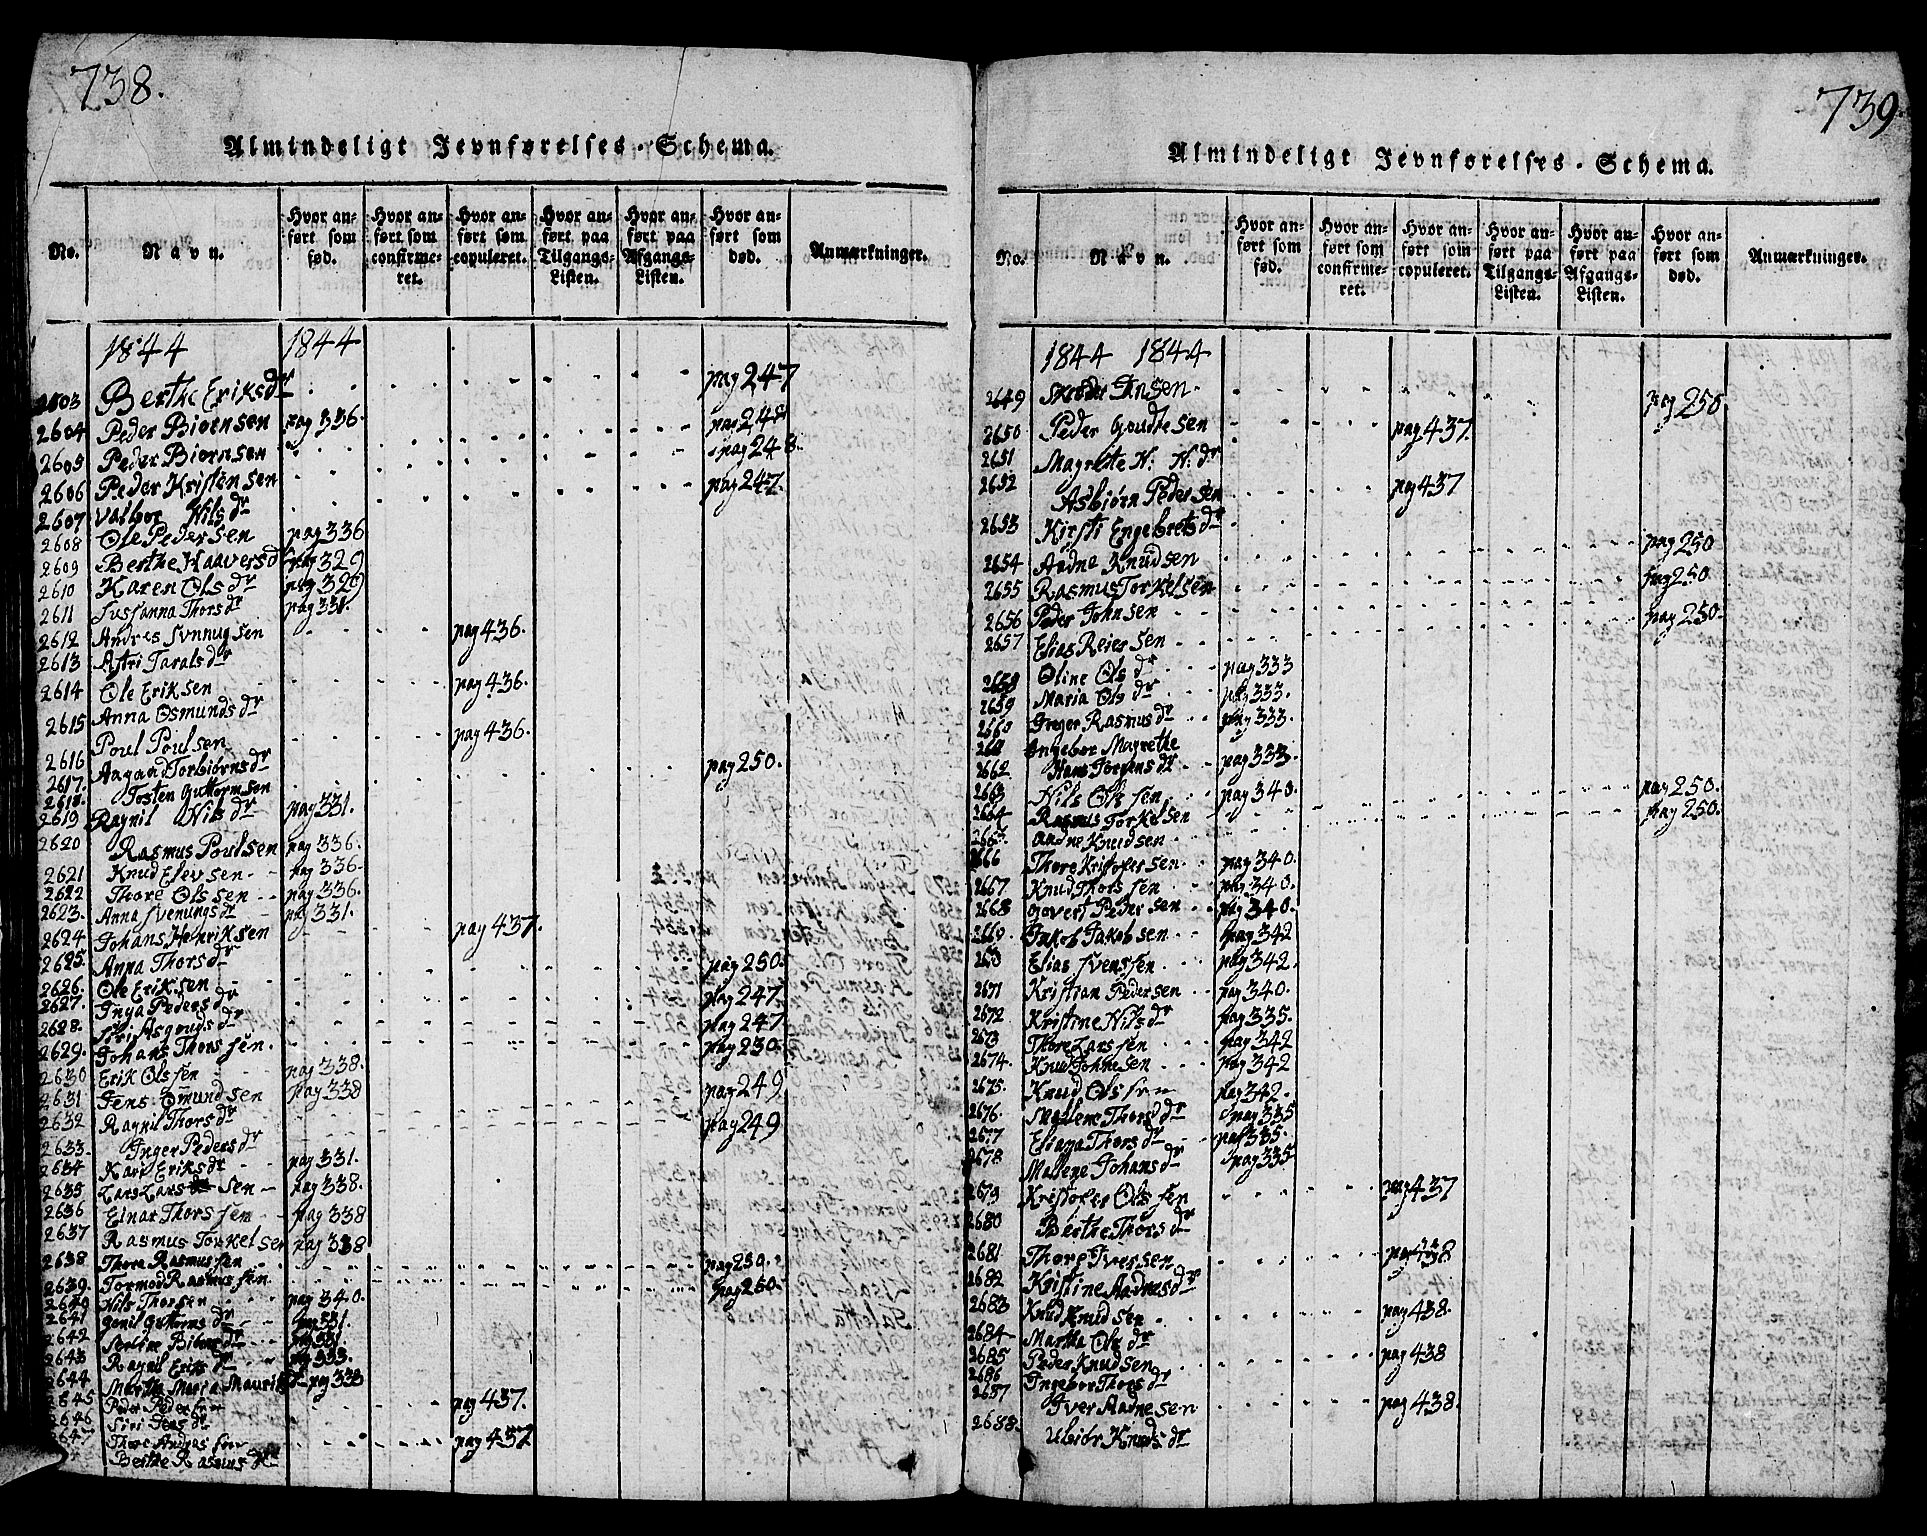 738.
Almindeligt Jevnførelses-Schema.
No.
Navn.
Hvor anført som fød.
Hvor anført som confirmeret.
Hvor anført som copuleret.
Hvor anført paa Tilgangs-Listen.
Hvor anført paa Afgangs-Listen.
Hvor anført som død.
Anmærkninger.
1844 1844
2603 Berthe Eriksdr pag 247
2604 Peder Biørnsen pag 336. pag 248
2605 Peder Biørnsen pag 248.
2606 Peder Kristensen pag 247.
2607 Valbor Nilsdr
2608 Ole Pedersen pag 336
2609 Berthe Haaversd pag 329
2610 Karen Olsdr pag 329
2611 Sussanna Thorsdr pag 331.
2612 Andres Svnnugsen pag 436.
2613 Astri Taralsdr
2614 Ole Eriksen pag 436.
Anna Osmundsdr
2615 Poul Poulsen pag 436.
2616 Aagaad Torbiørnsdr pag 250.
2617. Tosten Guttormsen
2618.
2619 Ragnil Nilsdr pag 331.
2620 Rasmus Poulsen pag 336.
2621 Knud Elevsen pag 336
2622 Thore Olssen pag 336.
2623. Anna Svenungsdr pag 331.
2624 Johans Henriksen pag 437.
2625. Anna Thorsdr pag 250.
2626. Ole Eriksen
2627. Inga Pedersdr pag 247
2628. Siri Asgoudsdr pag 247
2629. Johans Thorssen. pag 230
2630 Erik Olssen pag 338.
2631 Jens Omundsen pag 338 pag 249
2632 Ragnil Thorsdr
2633. Inger Pedersdr pag 249
2634 Kari Eriksdr pag 331.
2635 Lars Larssen pag 338.
2636 Einar Thorssen pag 338
2637 Rasmus Torkelsen pag 338
2638 Thore Rasmussen pag 250.
2639. Tormod Rasmussen pag 250
2640 Nils Thorsen pag 340.
2641 Gunil Guttormsdr pag 331.
2642 pag 331
2643 Ragnil Eriksdr pag 333.
2644 Martha Maria Mauritsd pag 333
2645 Peder Pedersen pag 437.
2646 Siri Jensdr
2647 Thore Andressen pag 437
Berthe Rasmusdr
739
Almindeligt Jevnførelses-Schema.
No.
Navn.
Hvor anført som fød.
Hvor anført som confirmeret.
Hvor anført som copuleret.
Hvor anført paa Tilgangs-Listen.
Hvor anført paa Afgangs-Listen.
Hvor anført som død.
Anmærkninger.
1844 1844
2649 Insen pag 250
2650 Peder Goudtesen pag 437
2651 Magrethe N. N.dr
2652 Asbiørn Pedersen pag 437
2653 Kirsti Engebretsdr
2654 Aadne Knudsen pag 250
2655 Rasmus Torkelsen pag 250
2656 Peder Johnsen pag 250
2657 Elias Reiersen
2658 Oline Olsdr pag 333
2659 Maria Olsdr pag 333.
2660 Greger Rasmusdr pag 333.
2661 Ingebor Magrethe
2662 Hans Jørgensdr pag 333.
2663 Nils Olssen pag 340. pag 250.
2664 Rasmus Torkelsen pag 250.
2665. Aadne Knudsen
2666 Thore Kristofersen pag 340.
2667 Knud Thorssen pag 340.
2668 Govert Pedersen pag 340.
2669. Jakob Jakobsen pag 342
2670 Elias Svenssen pag 342.
2671 Kristian Pedersen pag 340.
2672 Kristine Nilsdr pag 335.
2673 Thore Larssen pag 342
2674. Knud Johnesen pag 342
2675. Knud Olssen pag 342.
2676. Mallene Thorsdr pag 335
2677 Eliana Thorsdr pag 335.
2678 Mallene Johansdr pag 335
2679 Kristofer Olssen pag 437
2680 Berthe Thorsdr
2681 Thore Iversen pag 438
2682 Kristine Aadnesdr
2683 Knud Knudsen pag 438.
2684 Martha Olsdr
2685 Peder Knudsen pag 438
2686 Ingebor Thorsdr
2687 Iver Aadnesen pag 438.
2688. Ulbiør Knudsdr